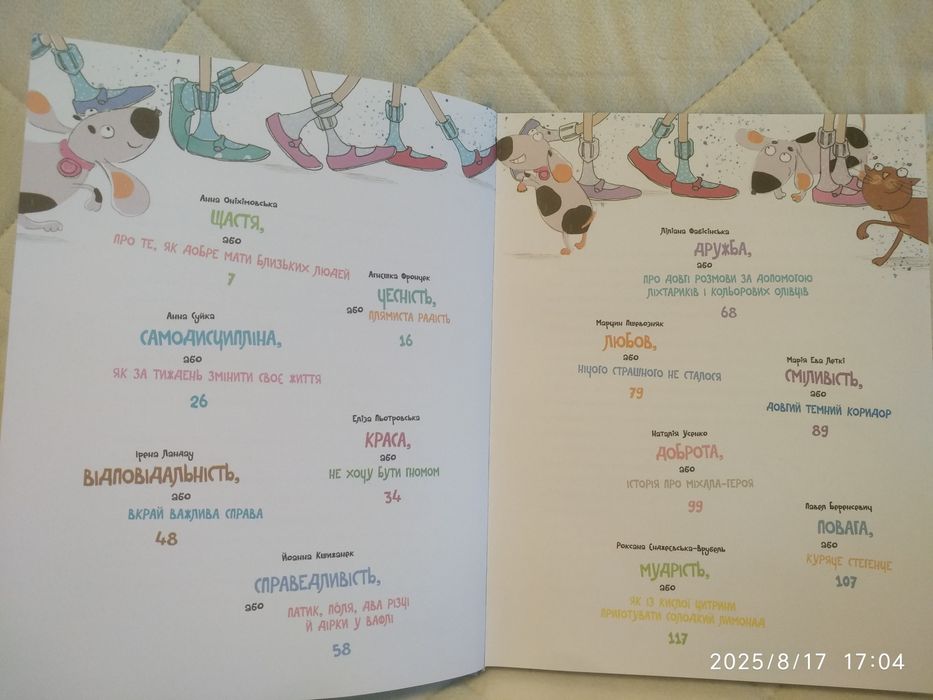 Анна Оніхімовська
ЩАСТЯ,
або
ПРО ТЕ, ЯК ДОБРЕ МАТИ БЛИЗЬКИХ ЛЮДЕЙ
7
Агнєшка Фрончек
ЧЕСНІСТЬ,
або ПЛЯМИСТА РАДІСТЬ
16
Анна Суйка
САМОДИСЦИПЛІНА,
або
ЯК ЗА ТИЖДЕНЬ ЗМІНИТИ СВОЄ ЖИТТЯ
26
Еліза Пьотровська
КРАСА,
або
НЕ ХОЧУ БУТИ ГНОМОМ
34
Ірена Ландау
ВІДПОВІДАЛЬНІСТЬ,
або
ВКРАЙ ВАЖЛИВА СПРАВА
48
Йоанна Кшижанек
СПРАВЕДЛИВІСТЬ,
або ПАТИК, ПОЛЯ, ДВА РІЗЦІ
Й ДІРКИ У ВАФЛІ
58
Ліліана Фабісінська
ДРУЖБА,
або
ПРО ДОВГІ РОЗМОВИ ЗА ДОПОМОГОЮ
ЛІХТАРИКІВ І КОЛЬОРОВИХ ОЛІВЦІВ
68
Марцин
ЛЮБОВ,
або
НІЧОГО СТРАШНОГО НЕ СТАЛОСЯ
79
Марія Ева Леткі
СМІЛИВІСТЬ,
або
ДОВГИЙ ТЕМНИЙ КОРИДОР
89
Наталія Усенко
ДОБРОТА,
або
ІСТОРІЯ ПРО МІХАЛА-ГЕРОЯ
99
Павел Беренсевич
ПОВАГА,
або
КУРЯЧЕ СТЕГЕНЦЕ
107
Роксана Єнджеєвська-Врубель
МУДРІСТЬ,
або
ЯК ІЗ КИСЛОЇ ЦИТРИНИ
ПРИГОТУВАТИ СОЛОДКИЙ ЛИМОНАД
117
2025/8/17 17:04